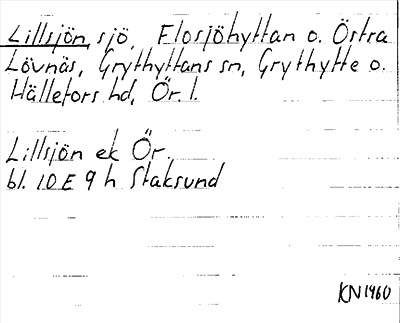 Lillsjön, sjö, Flosjöhyttan o. Östra
Lövnäs, Grythyttans sn, Grythytte o.
Hällefors hd, Ör. l.
Lillsjön ek Ör.
bl. 10E 9h Staksund
KN1960